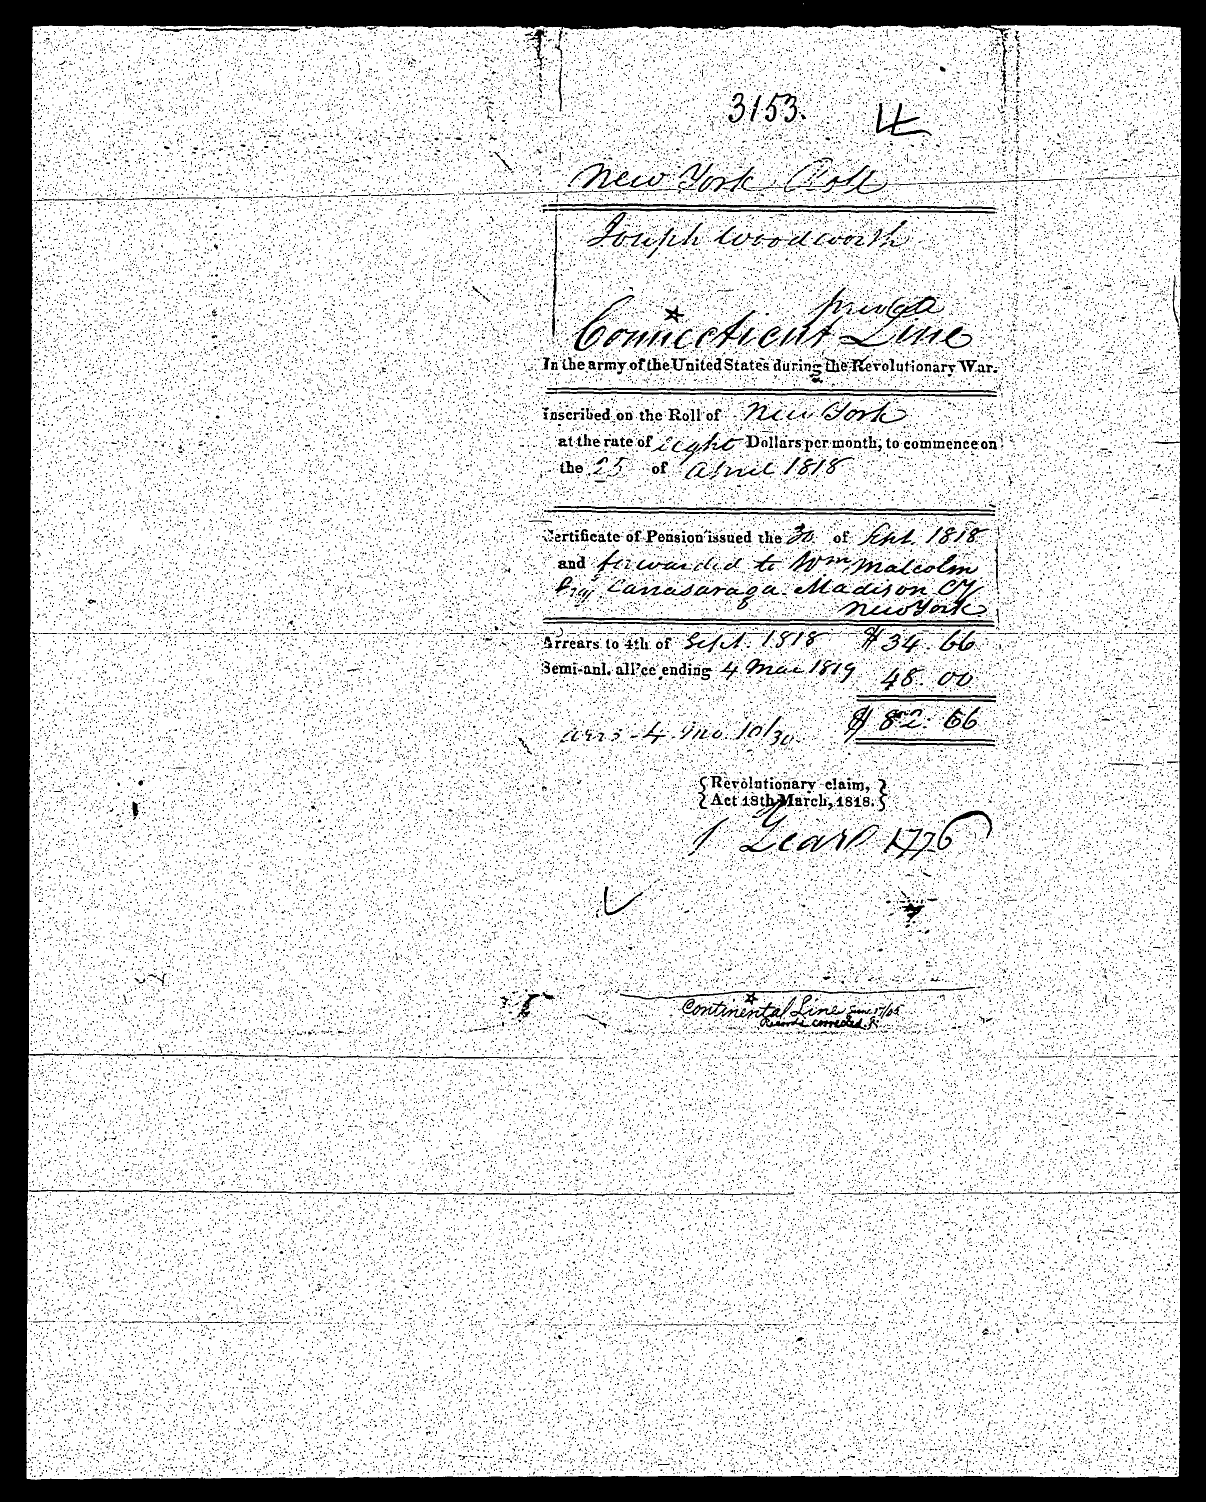 3153.
New York Roll
Joseph Woodworth
private
Connecticut Line
In the army of the United States during the Revolutionary War.
Inscribed on the Roll of New York
at the rate of eight Dollars per month, to commence on
the 25 of April 1818
Certificate of Pension issued the 30 of Sept. 1818
and forwarded to Wm. Malcolm
Esq Canasaraga. Madison Cy
New York
Arrears to 4th of Sept. 1818 $34.66
Semi-anl. all'ce ending 4 Mar 1819 48.00
$82.66
arrs - 4 mo. 10/30
Revolutionary claim,
Act 18th March, 1818.
1 Year 1776
Continental Line June 5/05
Records corrected.